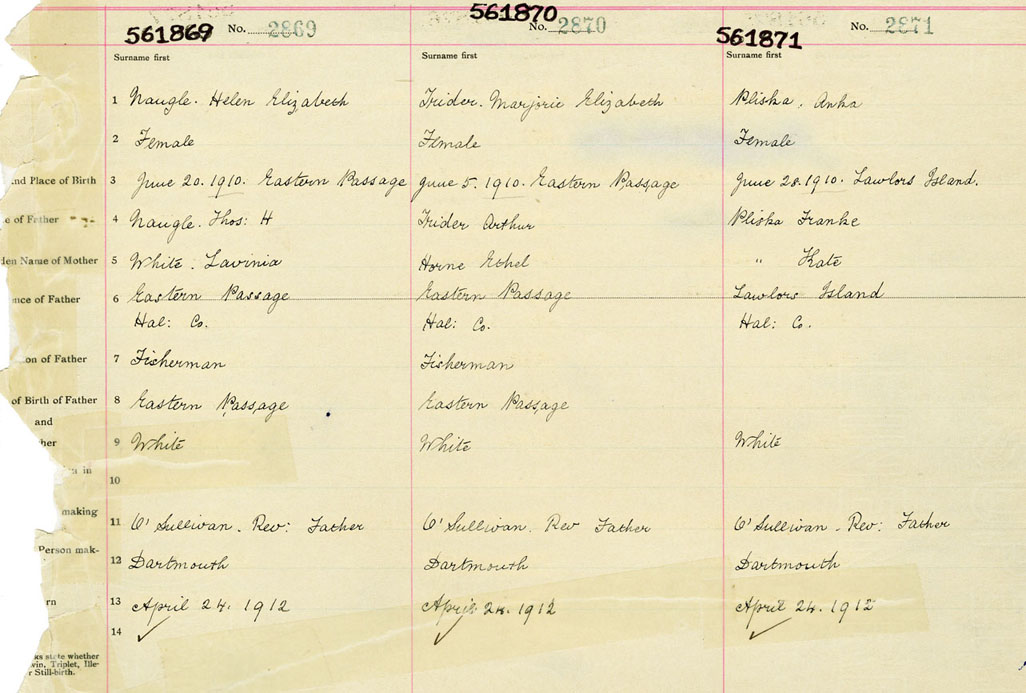 561869 No. 2869
561870 No. 2870
561871 No. 2871
Surname first Surname first Surname first
1 Naugle. Helen Elizabeth Trider. Marjorie Elizabeth Pliska. Anka
2 Female Female Female
nd Place of Birth 3 June 20. 1910. Eastern Passage June 5. 1910. Eastern Passage June 28. 1910. Lawlors Island.
e of Father 4 Naugle. Thos: H Trider Arthur Pliska Franke
den Name of Mother 5 White. Lavinia Horne Ethel " Kate
nce of Father 6 Eastern Passage Eastern Passage Lawlors Island
Hal: Co. Hal: Co. Hal: Co.
on of Father 7 Fisherman Fisherman
of Birth of Father 8 Eastern Passage Eastern Passage
and
her 9 White White White
in
10
making
11 O'Sullivan. Rev: Father O'Sullivan. Rev Father O'Sullivan. Rev: Father
Person mak-
12 Dartmouth Dartmouth Dartmouth
rn 13 April 24. 1912 April 24. 1912 April 24. 1912
14 ✓ ✓ ✓
ks state whether
win, Triplet, Ille-
r Still-birth.